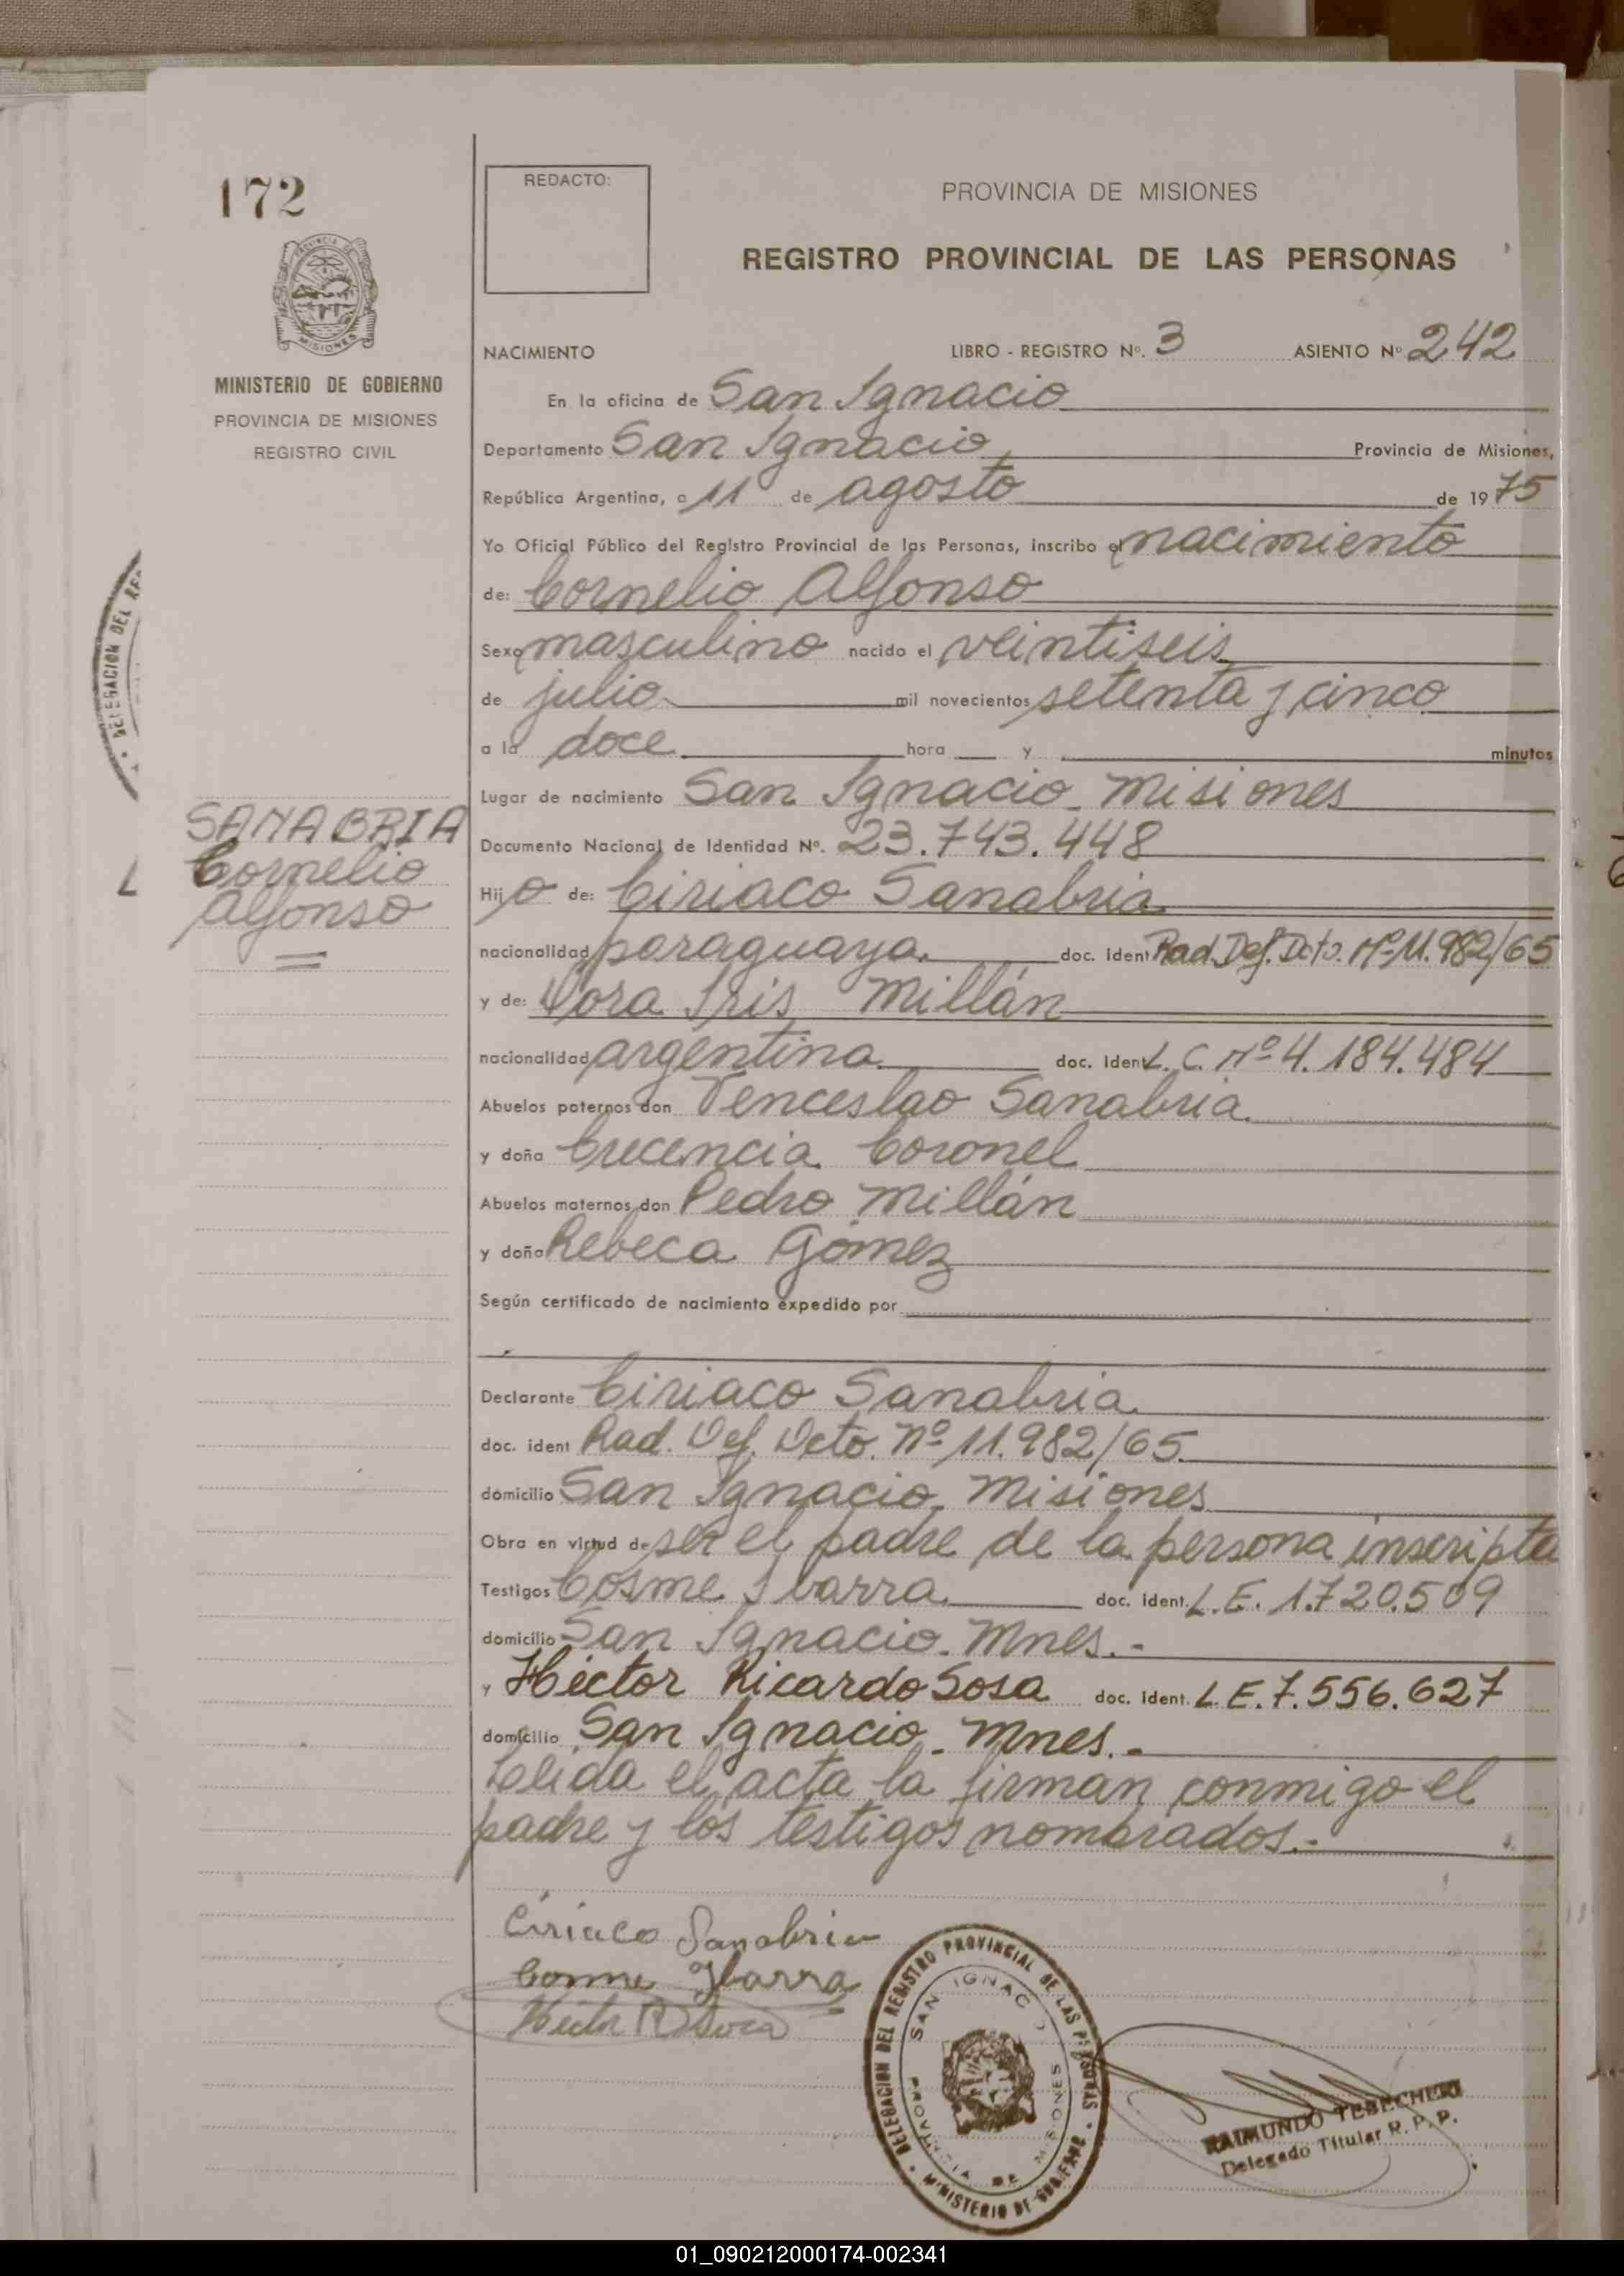 172
REDACTO:
PROVINCIA DE MISIONES
REGISTRO PROVINCIAL DE LAS PERSONAS
MISIONES
MINISTERIO DE GOBIERNO
PROVINCIA DE MISIONES
REGISTRO CIVIL
DELEGACION DEL
SANABRIA
Cornelio
Alfonso
NACIMIENTO LIBRO - REGISTRO Nº. 3 ASIENTO Nº 242
En la oficina de San Ignacio
Departamento San Ignacio Provincia de Misiones,
República Argentina, a 11 de agosto de 1975
Yo Oficial Público del Registro Provincial de las Personas, inscribo el nacimiento
de: Cornelio Alfonso
Sexo masculino nacido el veintiseis
de julio mil novecientos setenta y cinco
a la doce hora y minutos
Lugar de nacimiento San Ignacio - Misiones
Documento Nacional de Identidad Nº. 23.743.448
Hijo de: Ciriaco Sanabria
nacionalidad paraguaya. doc. ident Rad. Def. Dcto. Nº 11.982/65
y de: Dora Iris Millán
nacionalidad argentina. doc. ident L.C. Nº 4.184.484
Abuelos paternos don Venceslao Sanabria
y doña Crecencia Coronel
Abuelos maternos don Pedro Millán
y doña Rebeca Gómez
Según certificado de nacimiento expedido por
Declarante Ciriaco Sanabria
doc. ident Rad. Def. Dcto. Nº 11.982/65.
domicilio San Ignacio, Misiones
Obra en virtud de ser el padre de la persona inscripta
Testigos Cosme Ibarra doc. ident. L.E. 1.720.509
domicilio San Ignacio. Mnes. -
y Héctor Ricardo Sosa doc. ident. L.E. 7.556.627
domicilio San Ignacio - Mnes. -
Leida el acta la firman conmigo el
padre y los testigos nombrados. -
Ciriaco Sanabria
Cosme Ibarra
Héctor R Sosa
DELEGACION DEL REGISTRO PROVINCIAL DE LAS PERSONAS
SAN IGNACIO
PROVINCIA DE MISIONES
MINISTERIO DE GOBIERNO
RAIMUNDO TEBECHERI
Delegado Titular R. P. P.
01_090212000174-002341